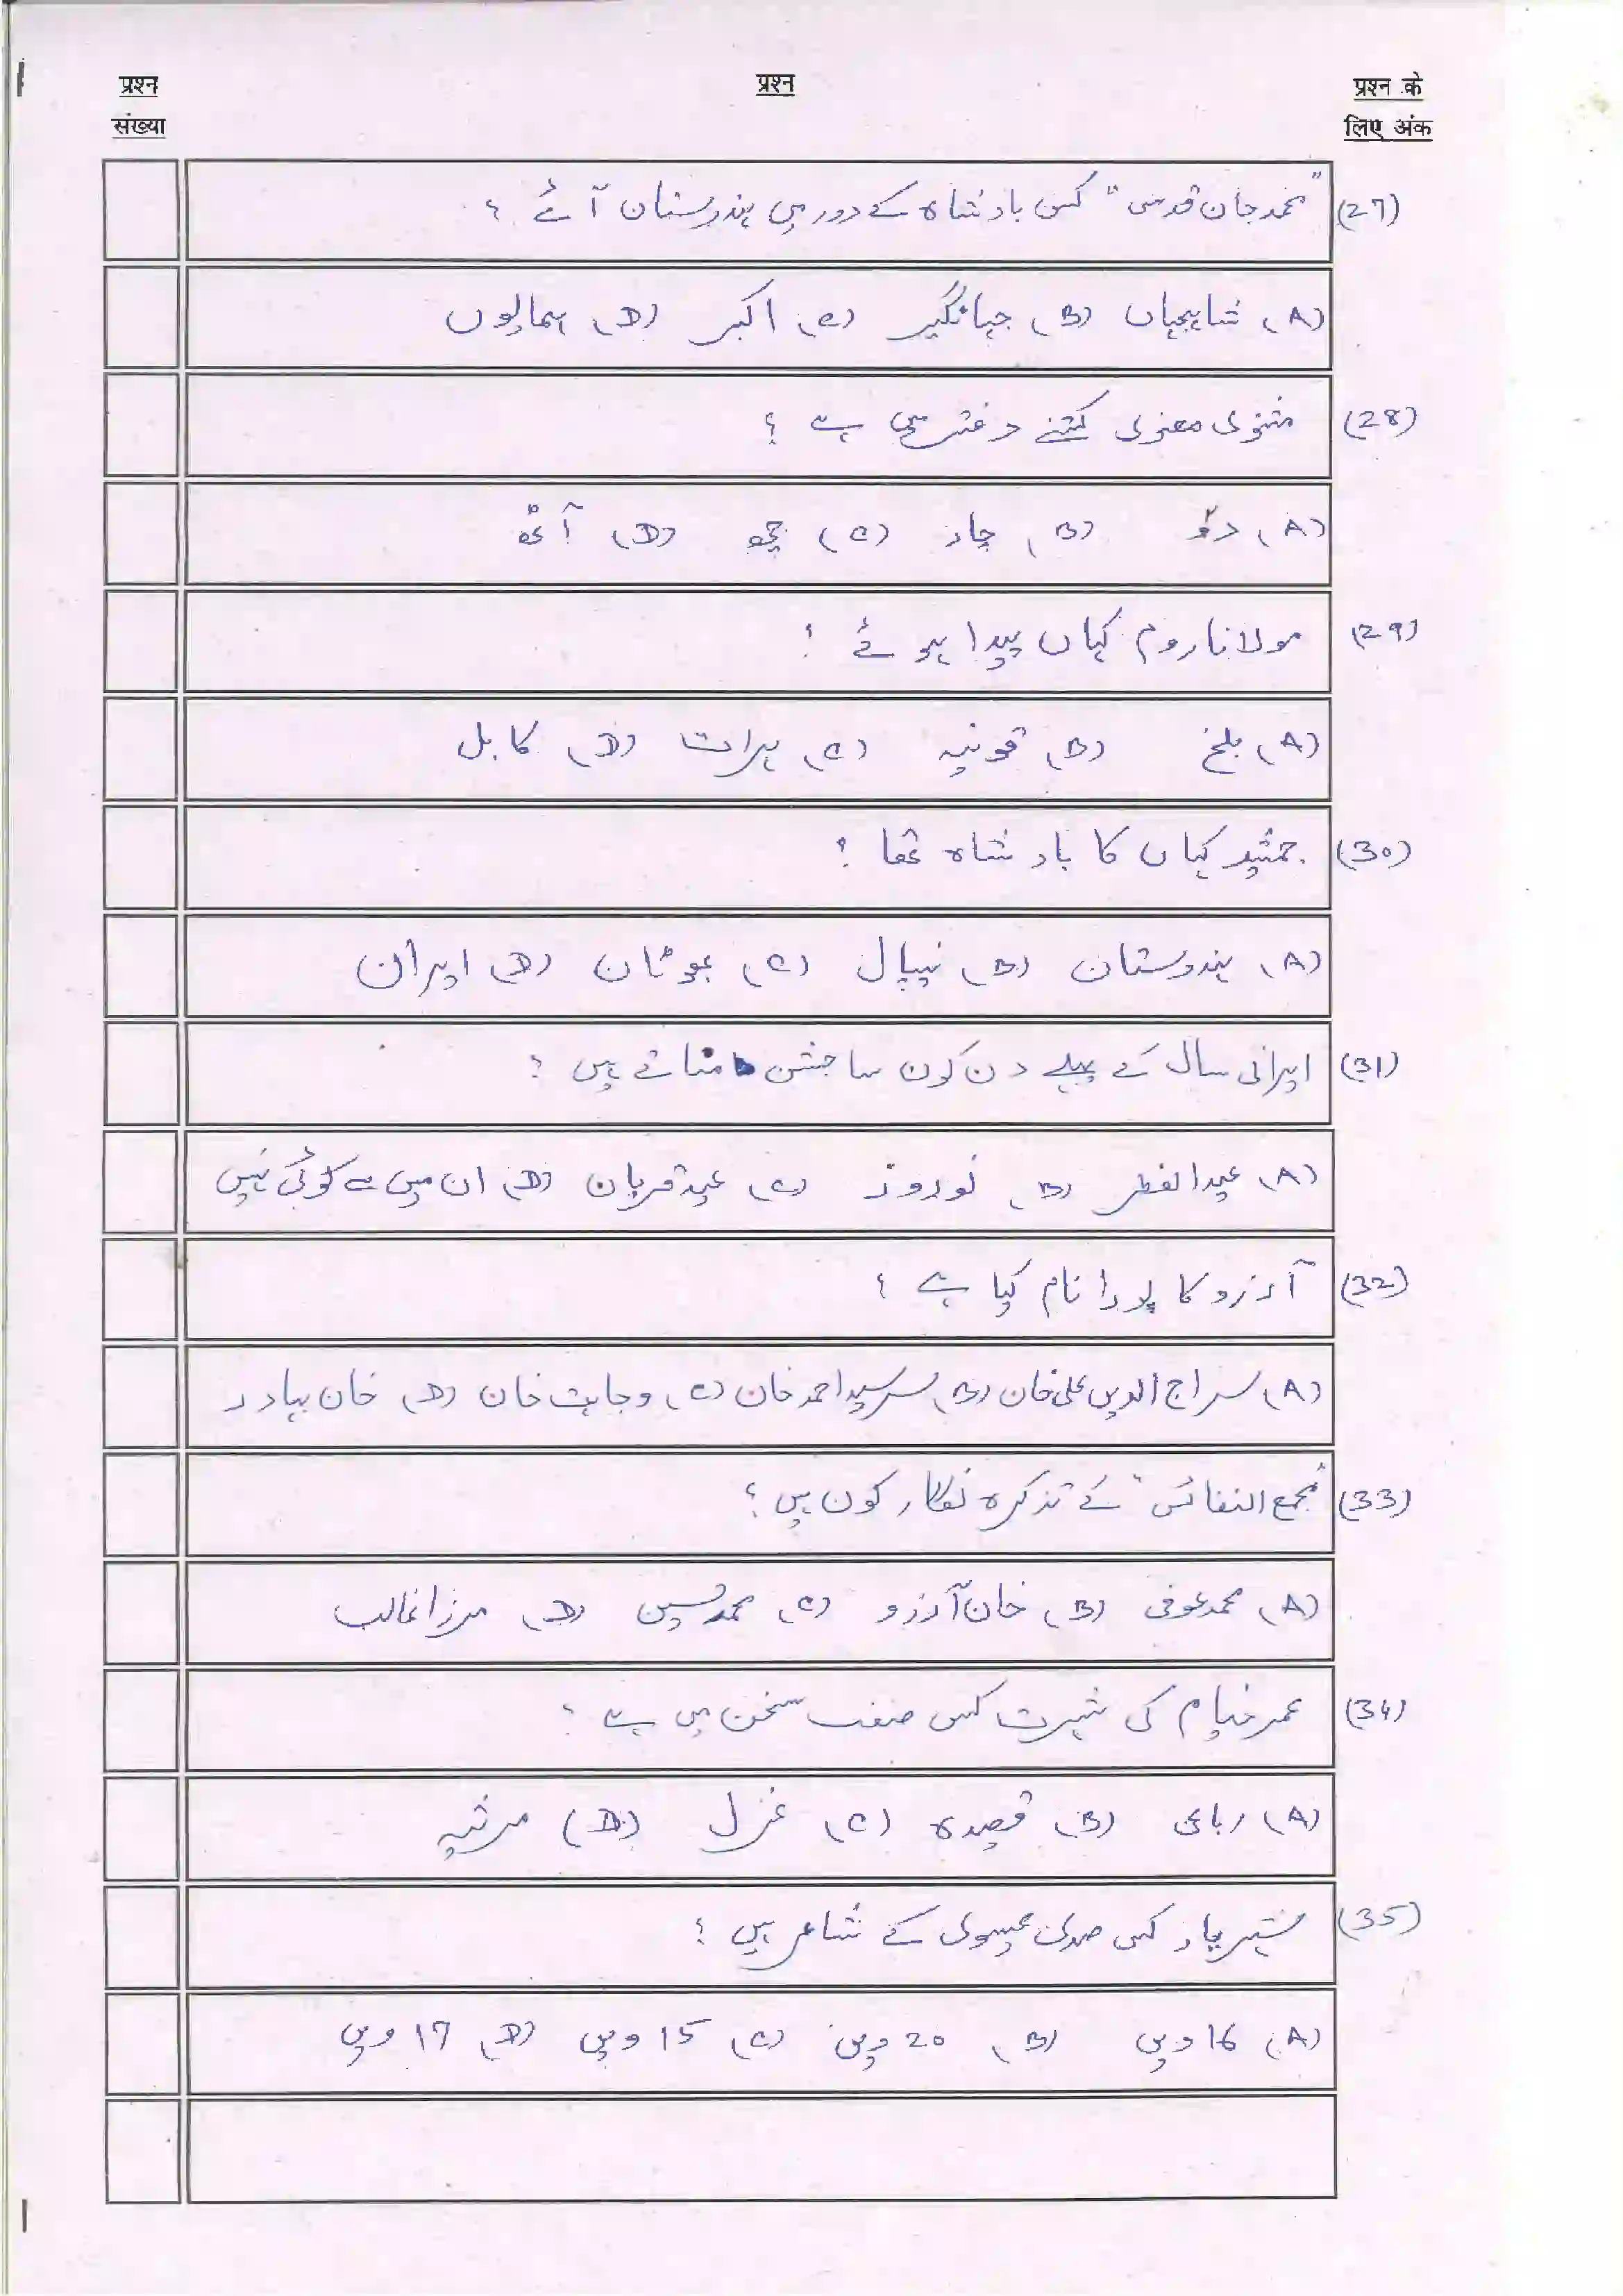 प्रश्न संख्या
प्रश्न
प्रश्न के लिए अंक
(27) "محمد جان قدسی" کس بادشاہ کے دور میں ہندوستان آئے ؟
(A) شاہجہاں (B) جہانگیر (C) اکبر (D) ہمایوں
(28) مثنوی معنوی کتنے دفتر میں ہے ؟
(A) دو (B) چار (C) چھ (D) آٹھ
(29) مولانا روم کہاں پیدا ہوئے ؟
(A) بلخ (B) قونیہ (C) ہرات (D) کابل
(30) جمشید کہاں کا بادشاہ تھا ؟
(A) ہندوستان (B) نیپال (C) بھوٹان (D) ایران
(31) ایرانی سال کے پہلے دن کون سا جشن مناتے ہیں ؟
(A) عید الفطر (B) نوروز (C) عید قربان (D) ان میں سے کوئی نہیں
(32) آرزو کا پورا نام کیا ہے ؟
(A) سراج الدین علی خان (B) سرسید احمد خان (C) وجاہت خان (D) خان بہادر
(33) "مجمع النفائس" کے تذکرہ نگار کون ہیں ؟
(A) محمد عوفی (B) خان آرزو (C) محمد حسین (D) مرزا غالب
(34) عمر خیام کی شہرت کس صنف سخن میں ہے ؟
(A) رباعی (B) قصیدہ (C) غزل (D) مرثیہ
(35) شہریار کس صدی عیسوی کے شاعر ہیں ؟
(A) 16 ویں (B) 20 ویں (C) 15 ویں (D) 17 ویں